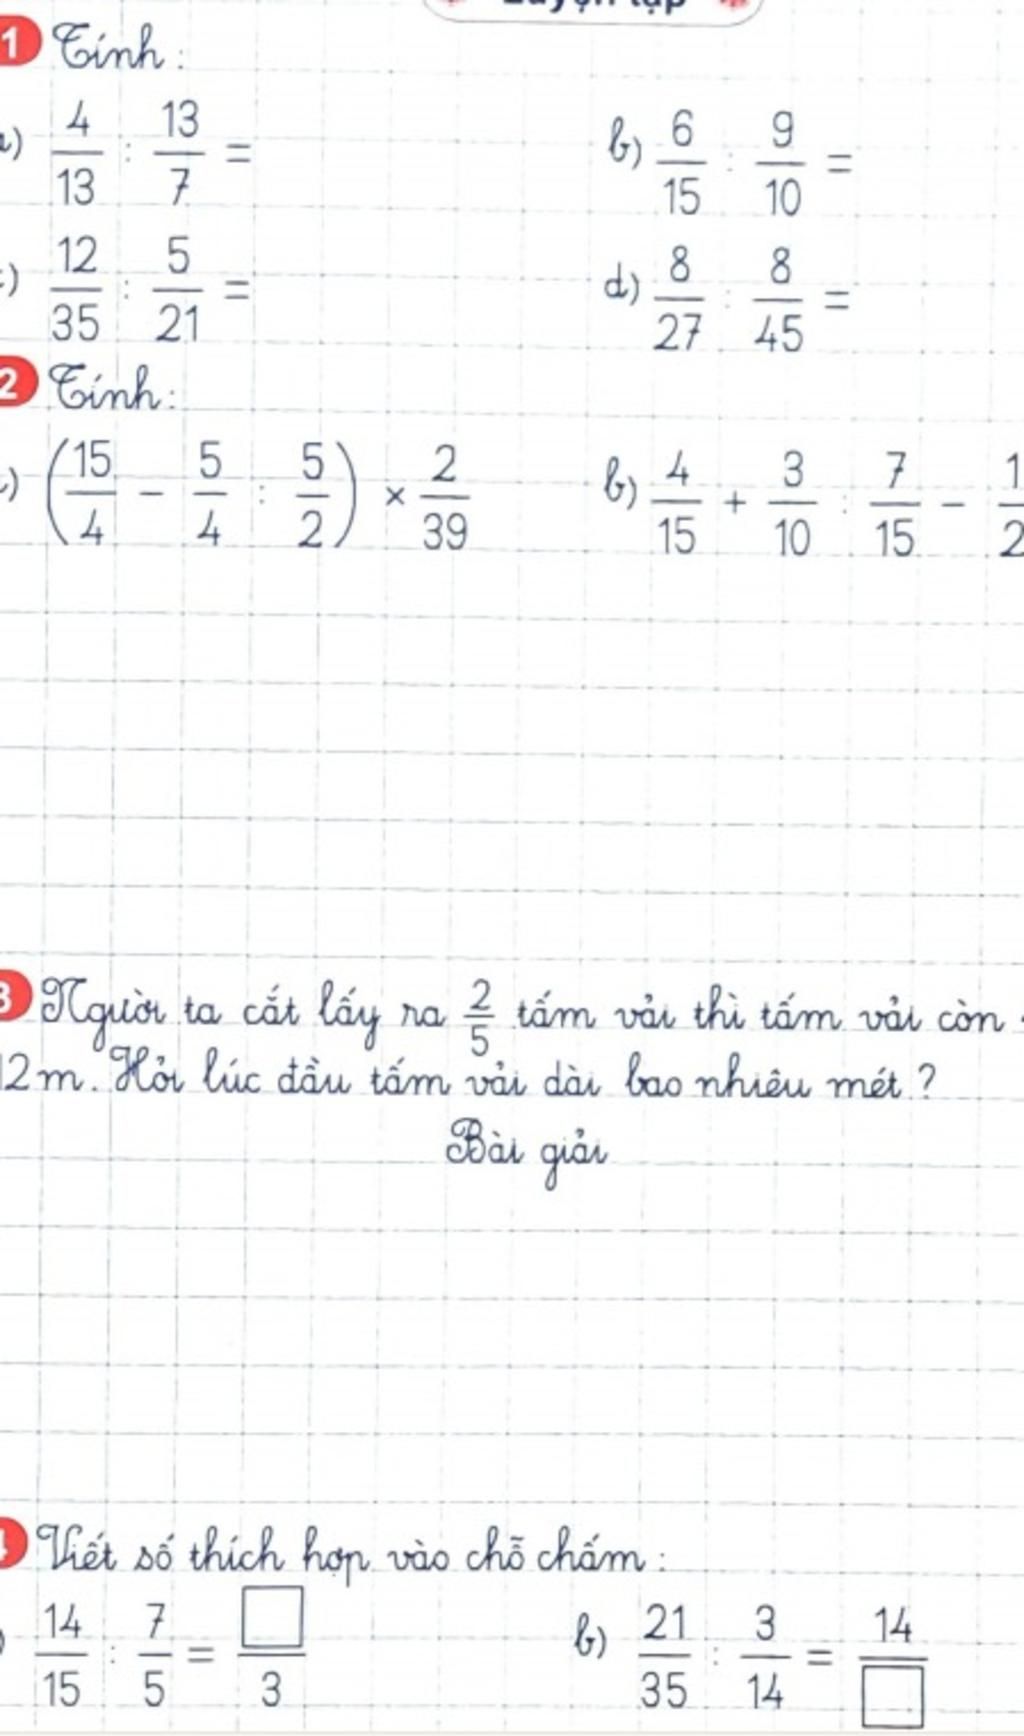 Luyện tập
1 Tính:
a) 4/13 : 13/7 = b) 6/15 : 9/10 =
c) 12/35 : 5/21 = d) 8/27 : 8/45 =
2 Tính:
a) (15/4 - 5/4 : 5/2) × 2/39 b) 4/15 + 3/10 : 7/15 - 1/2
3 Người ta cắt lấy ra 2/5 tấm vải thì tấm vải còn
12m. Hỏi lúc đầu tấm vải dài bao nhiêu mét?
Bài giải
4 Viết số thích hợp vào chỗ chấm:
14/15 : 7/5 = □/3 b) 21/35 : 3/14 = 14/□